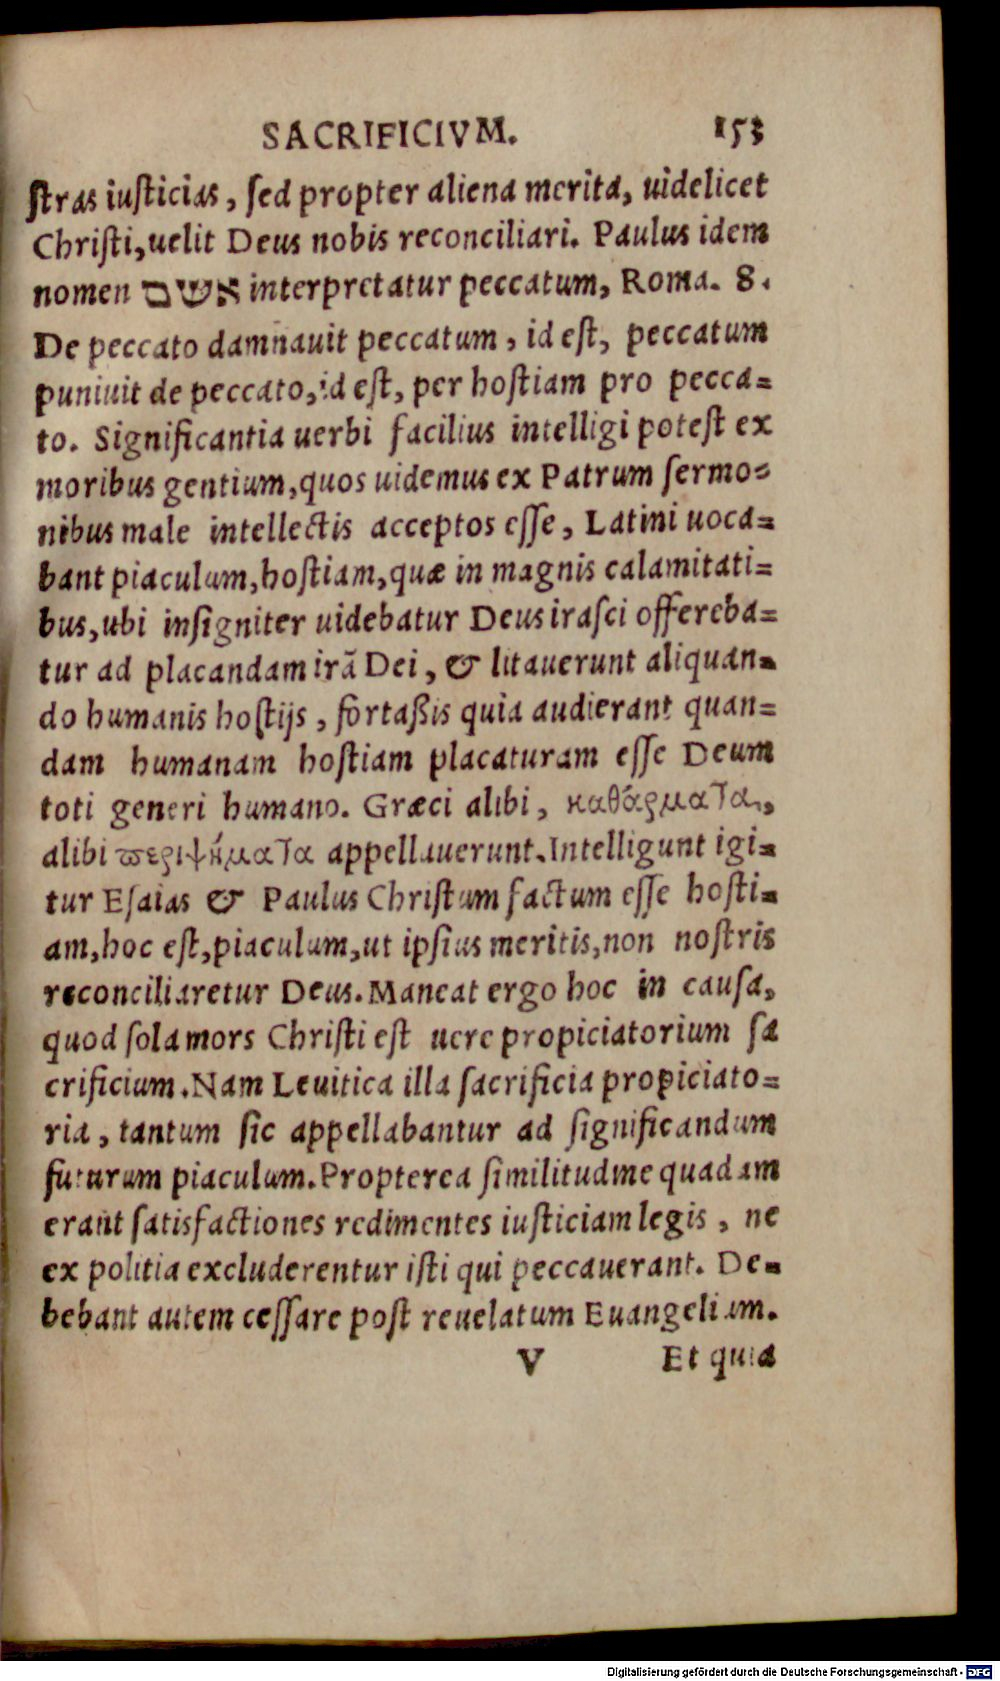 SACRIFICIVM. 153
ſtras iuſticias, ſed propter aliena merita, uidelicet
Chriſti, uelit Deus nobis reconciliari. Paulus idem
nomen אשם interpretatur peccatum, Roma. 8.
De peccato damnauit peccatum, id eſt, peccatum
puniuit de peccato, id eſt, per hoſtiam pro pecca=
to. Significantia uerbi facilius intelligi poteſt ex
moribus gentium, quos uidemus ex Patrum ſermo=
nibus male intellectis acceptos eſſe, Latini uoca=
bant piaculum, hoſtiam, quæ in magnis calamitati=
bus, ubi inſigniter uidebatur Deus iraſci offereba=
tur ad placandam irã Dei, & litauerunt aliquan=
do humanis hoſtijs, fortaßis quia audierant quan=
dam humanam hoſtiam placaturam eſſe Deum
toti generi humano. Græci alibi, καθάρματα,
alibi περιψήματα appellauerunt. Intelligunt igi=
tur Eſaias & Paulus Chriſtum factum eſſe hoſti=
am, hoc eſt, piaculum, ut ipſius meritis, non noſtris
reconciliaretur Deus. Maneat ergo hoc in cauſa,
quod ſola mors Chriſti eſt uere propiciatorium ſa
crificium. Nam Leuitica illa ſacrificia propiciato=
ria, tantum ſic appellabantur ad ſignificandum
futurum piaculum. Propterea ſimilitudine quadam
erant ſatisfactiones redimentes iuſticiam legis, ne
ex politia excluderentur iſti qui peccauerant. De=
bebant autem ceſſare poſt reuelatum Euangelium.
V Et quia
Digitalisierung gefördert durch die Deutsche Forschungsgemeinschaft - DFG